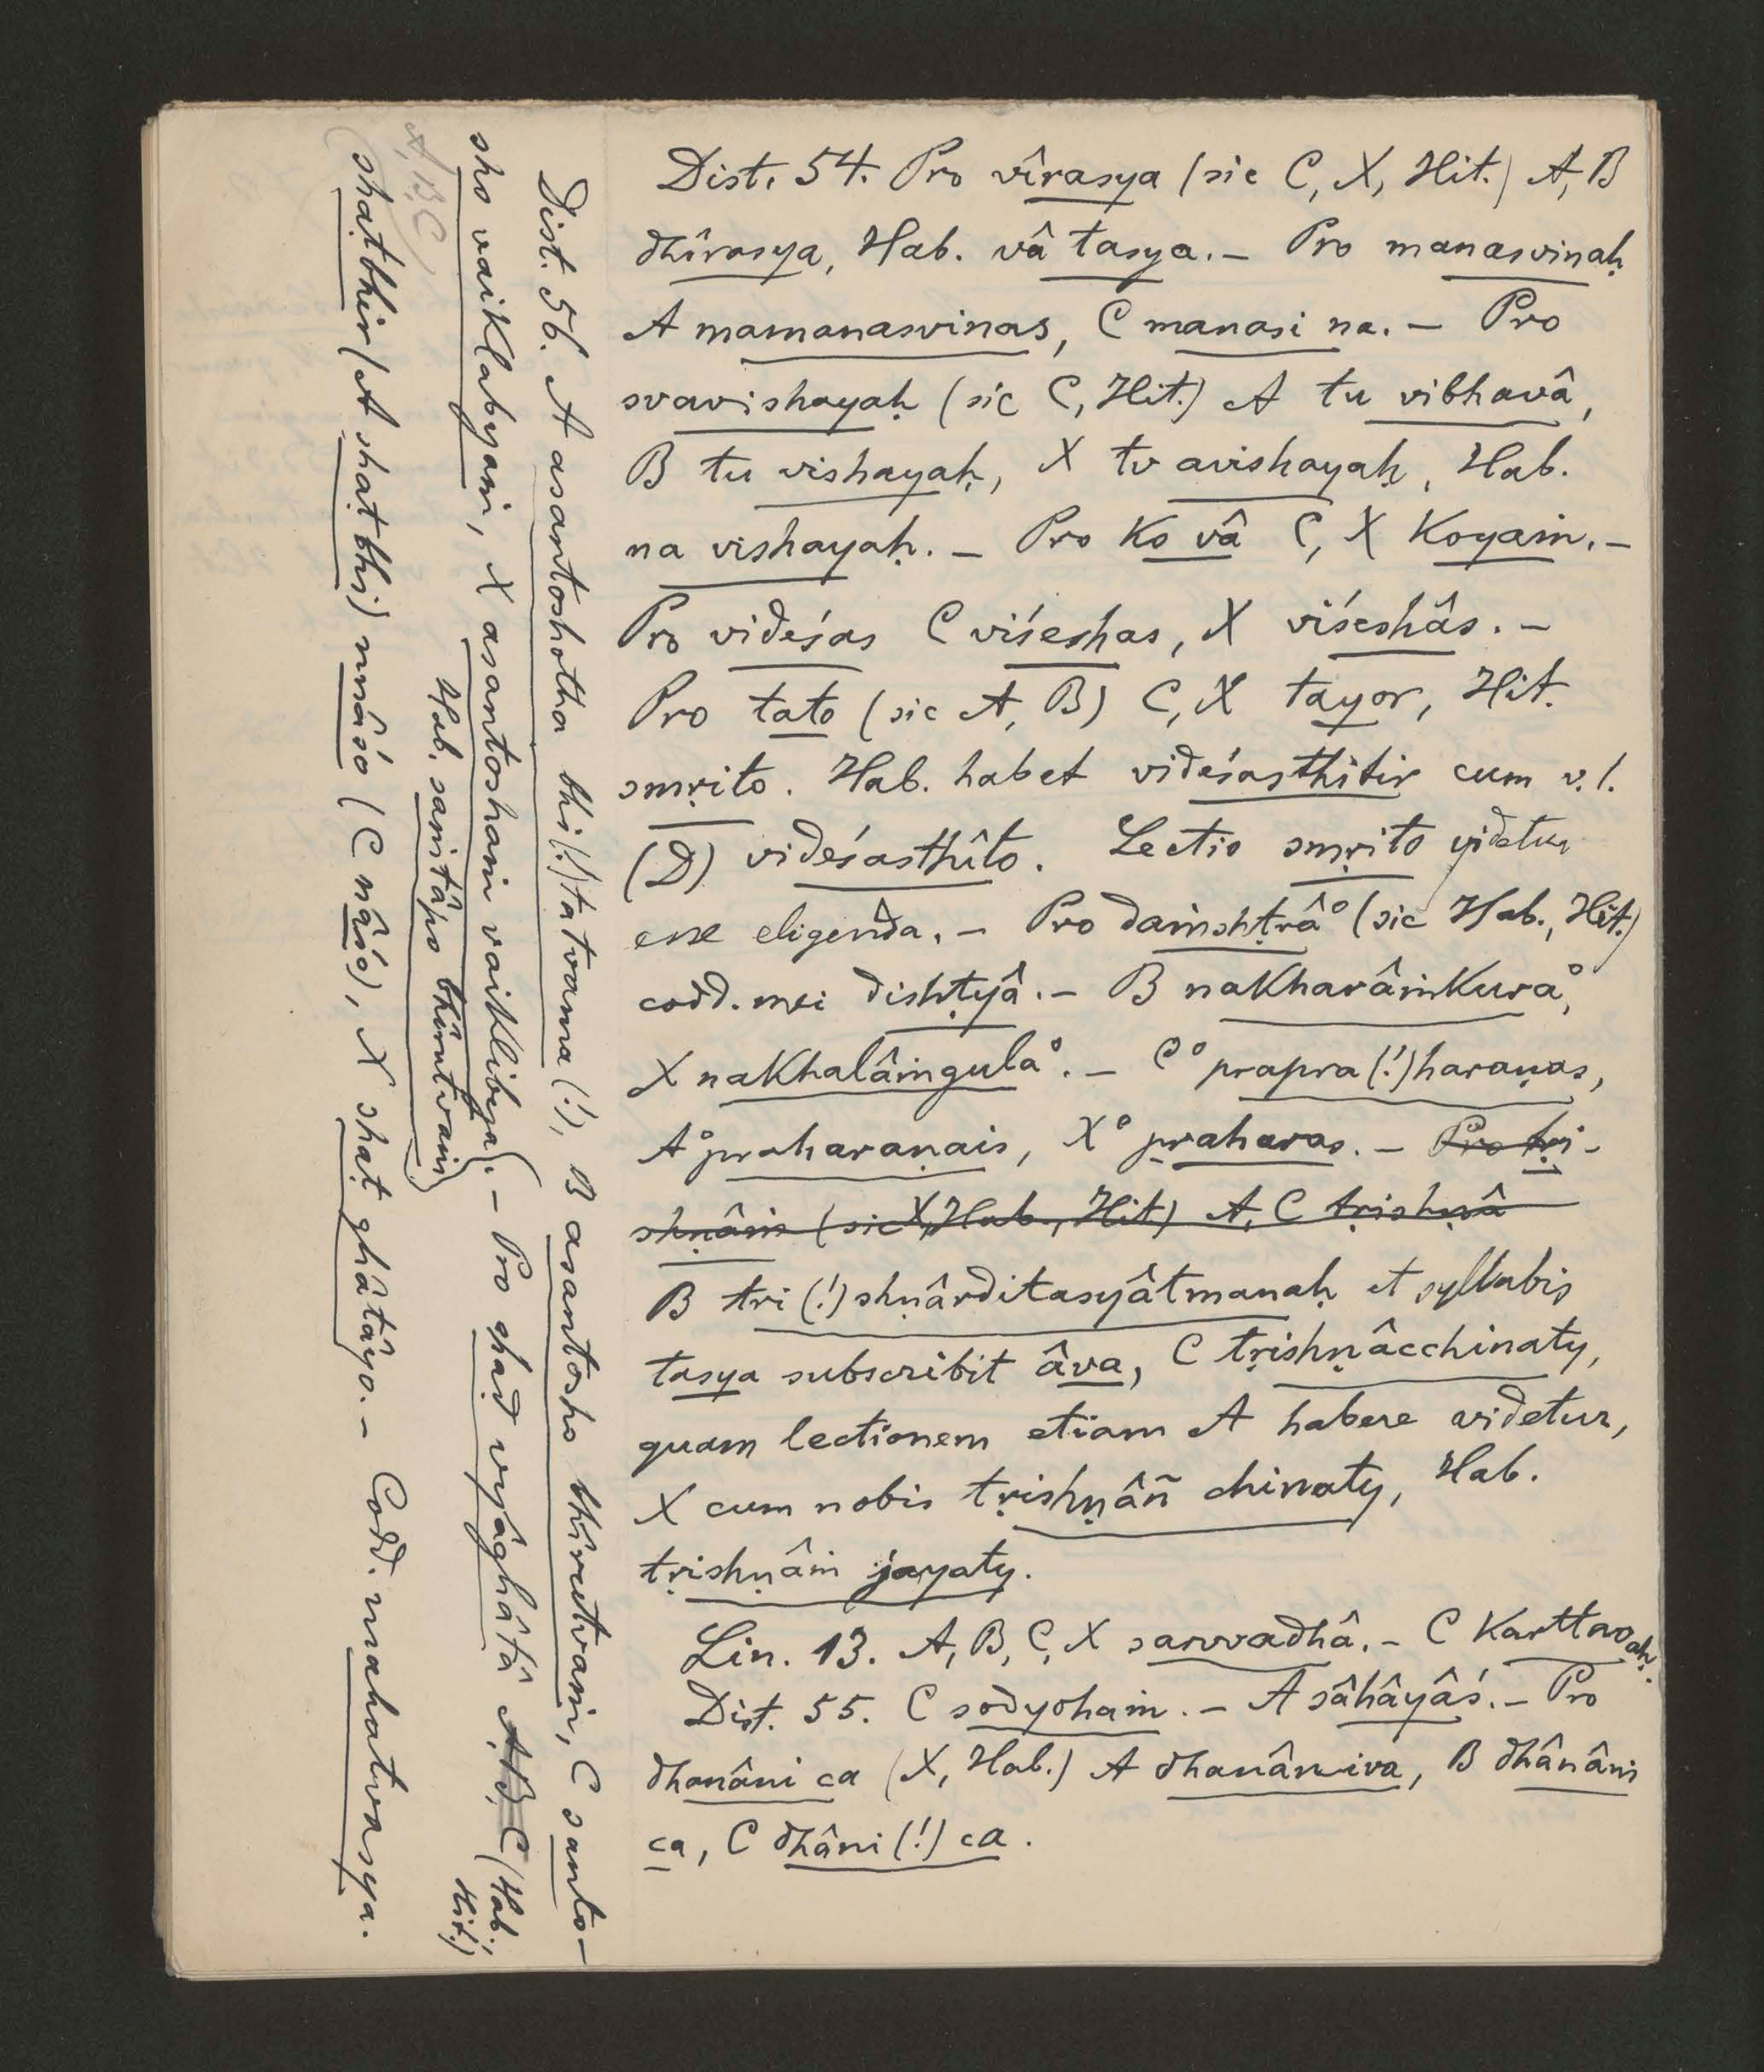 Dist. 54. Pro vîrasya (sic C, X, Hit.) A, B
dhîrasya, Hab. vâ tasya. — Pro manasvinaḥ
A mamanasvinas, C manasi na. — Pro
svavishayaḥ (sic C, Hit.) A tu vibhavâ,
B tu vishayaḥ, X tv avishayaḥ, Hab.
na vishayaḥ. — Pro ko vâ C, X koyaṁ. —
Pro videśas C viśeshas, X viśeshâs. —
Pro tato (sic A, B) C, X tayor, Hit.
smṛito. Hab. habet videśasthitir cum v. l.
(D) videśasthîto. Lectio smṛito videtur
esse eligenda. — Pro daṁshṭrâ° (sic Hab., Hit.)
codd. mei dishṭyâ. — B nakharâṁkura°,
X nakhalâṁgula°. — C °prapra(!)haraṇas,
A °praharaṇais, X °praharas. — Pro tṛi-
shṇâṁ (sic X, Hab., Hit) A, C tṛishṇâ
B tri(!)shṇârditasyâtmanaḥ et syllabis
tasya subscribit âva, C tṛishṇâcchinaty,
quam lectionem etiam A habere videtur,
X cum nobis tṛishṇâñ chinaty, Hab.
tṛishṇâṁ jayaty.
Lin. 13. A, B, C, X sarvvadhâ. — C karttavoaḥ.
Dist. 55. C sodyohaṁ. — A sâhâyâś. — Pro
dhanâni ca (X, Hab.) A dhanâniva, B dhânâni
ca, C dhâni(!) ca.
Dist. 56. A asantoshotha bhi(!)tatvama(!), B asantosho bhîrutvaṁ, C santo-
sho vaiklabyaṁ, X asantoshaṁ vaiklibya. — Pro shaḍ vyâghâtâ A, B, C (Hab.,
Hit.)
Hab. saṁtâpo bhîrutvaṁ)
A, B, C
shaṭbhir (A shaṭbhi) nnâśo (C nâśo), X shaṭ ghâtâyo. — Codd. mahatvasya.